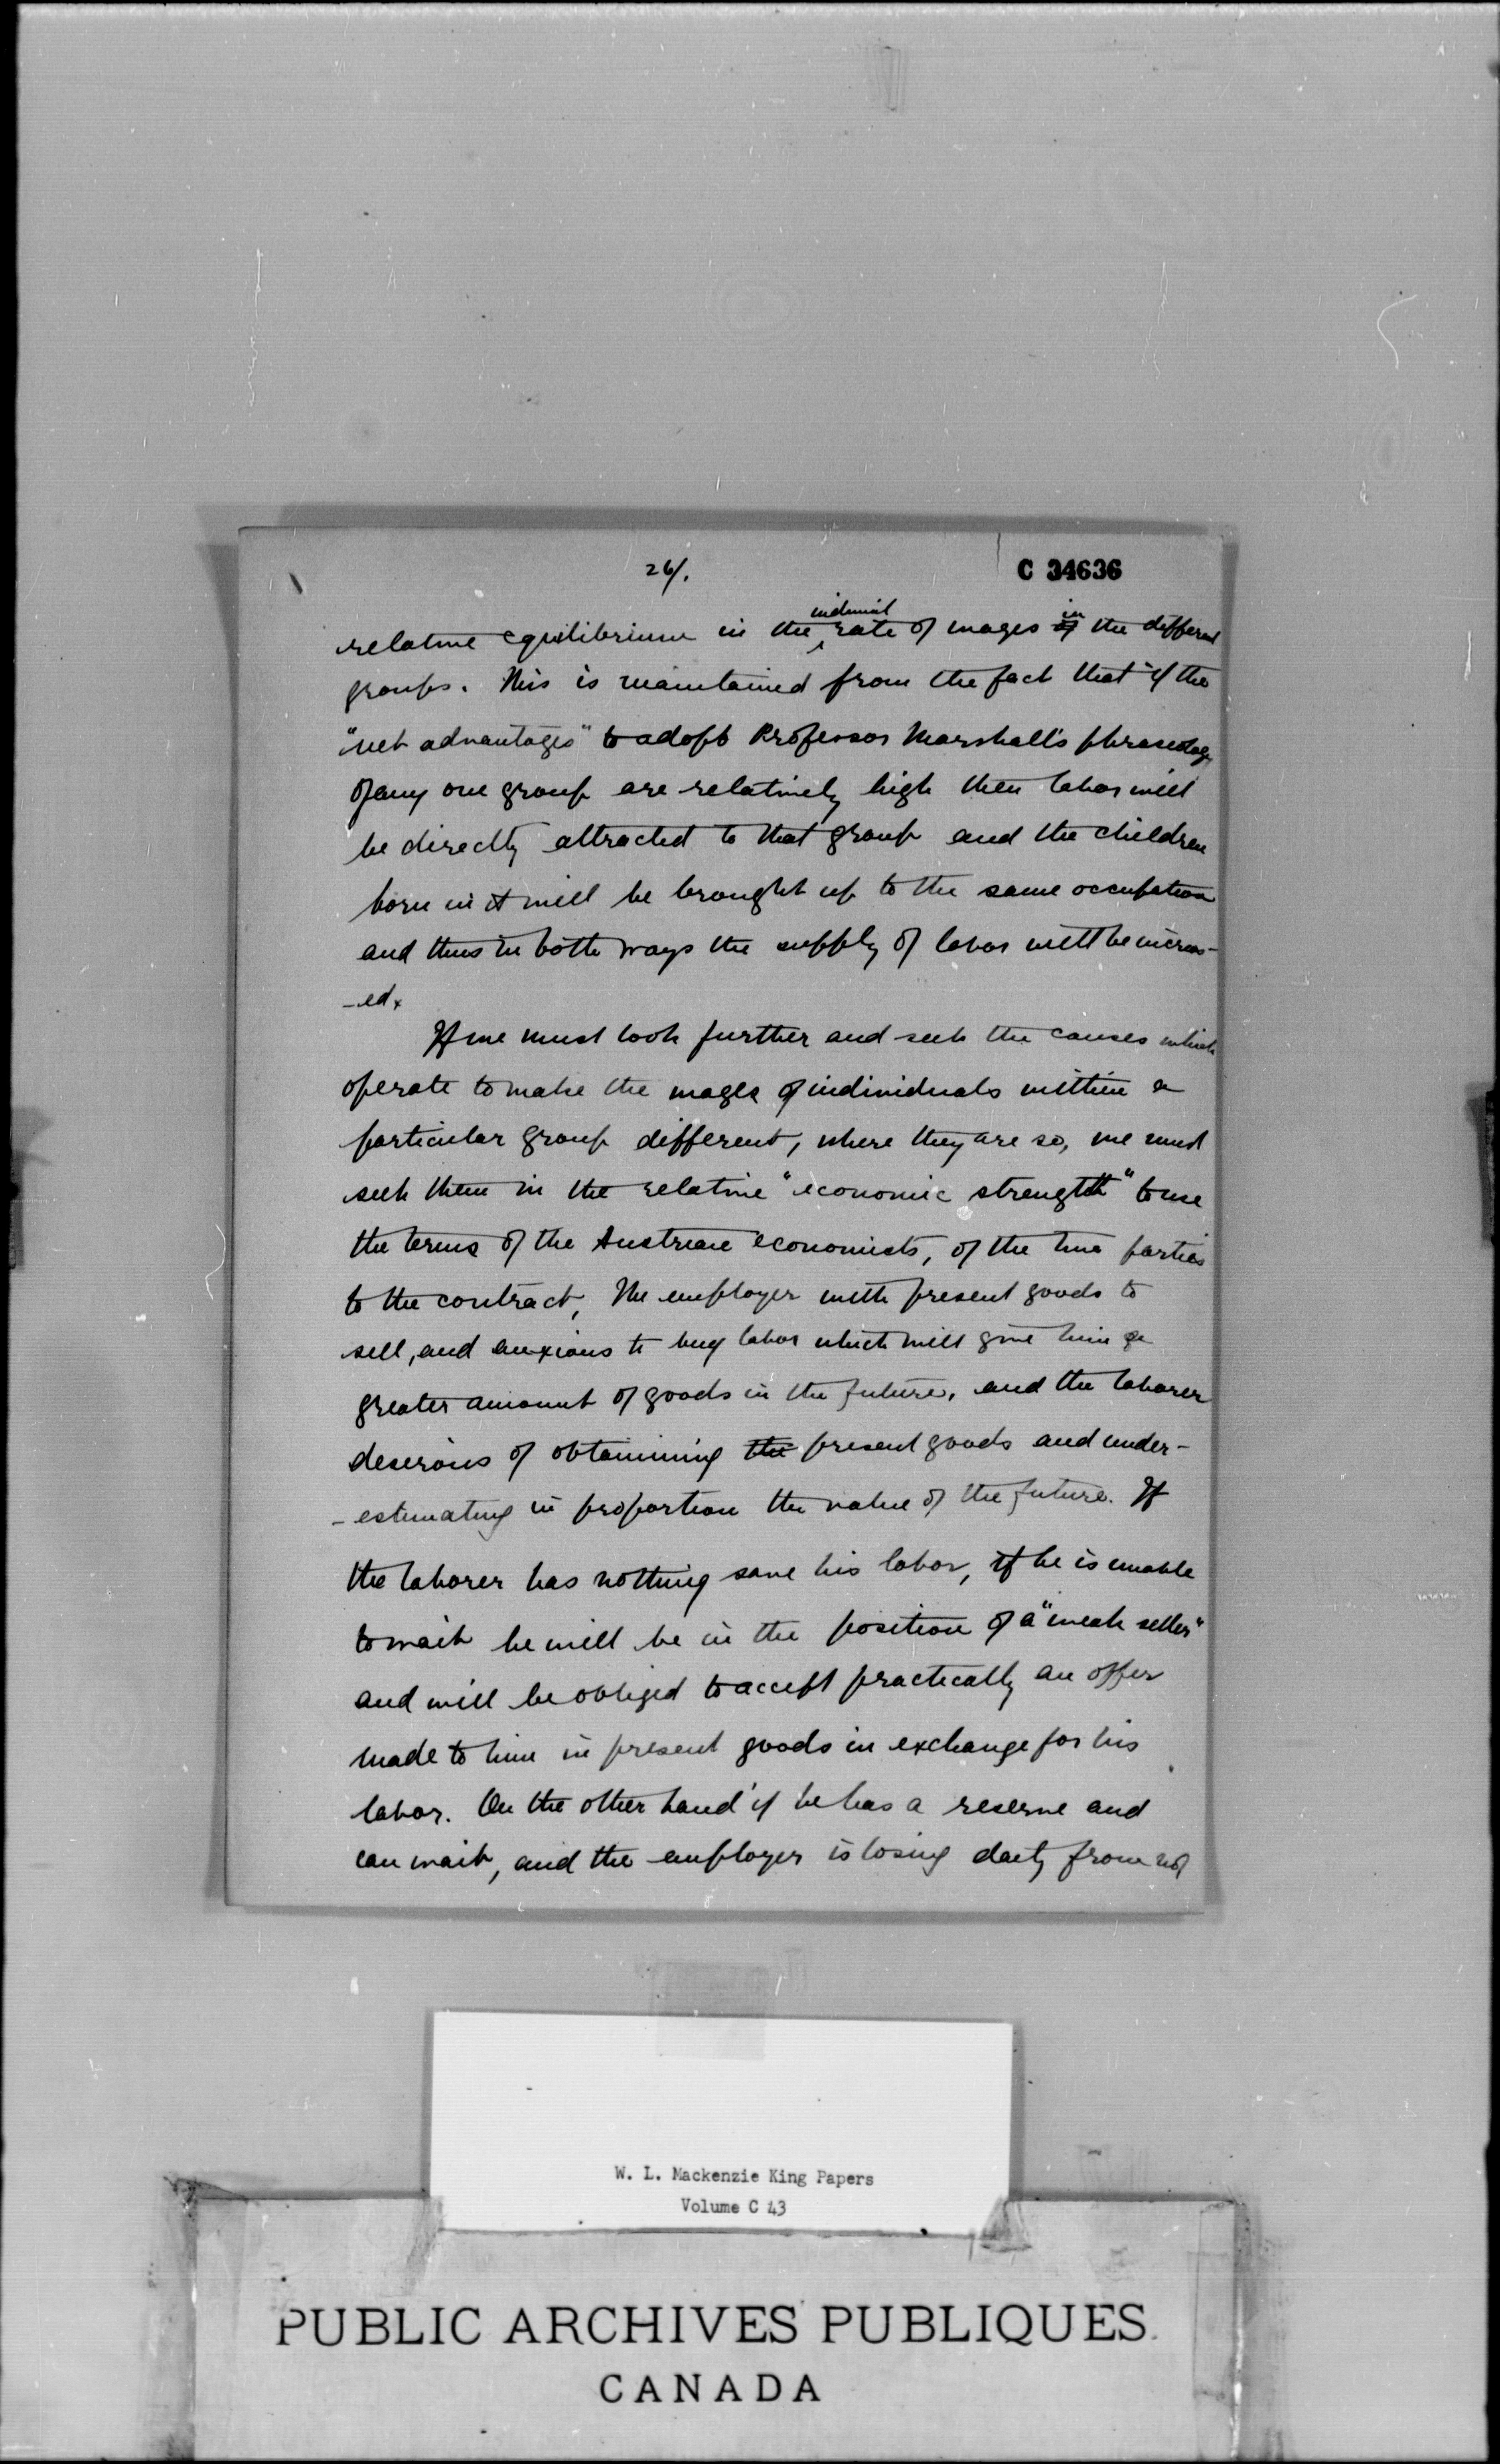 26/.
C 34636
relative equilibrium in the rate of wages of in the different
groups. This is maintained from the fact that if the
"net advantages" to adopt Professor Marshall's phraseology
of any one group are relatively high then labor will
be directly attracted to that group and the children
born in it will be brought up to the same occupation
and thus in both ways the supply of labor will be increas-
-ed.
If we must look further and seek the causes which
operate to make the wages of individuals within a
particular group different, where they are so, we must
seek them in the relative "economic strength" to use
the terms of the Austrian economists, of the two parties
to the contract, The employer with present goods to
sell, and anxious to buy labor which will give him a
greater amount of goods in the future, and the laborer
deserious of obtainining the present goods and under-
-estimating in proportion the value of the future. If
the laborer has nothing save his labor, if he is unable
to wait he will be in the position of a "weak seller"
and will be obliged to accept practically an offer
made to him in present goods in exchange for his
labor. On the other hand if he has a reserve and
can wait, and the employer is losing daily from not
W. L. Mackenzie King Papers
Volume C 43
PUBLIC ARCHIVES PUBLIQUES
CANADA